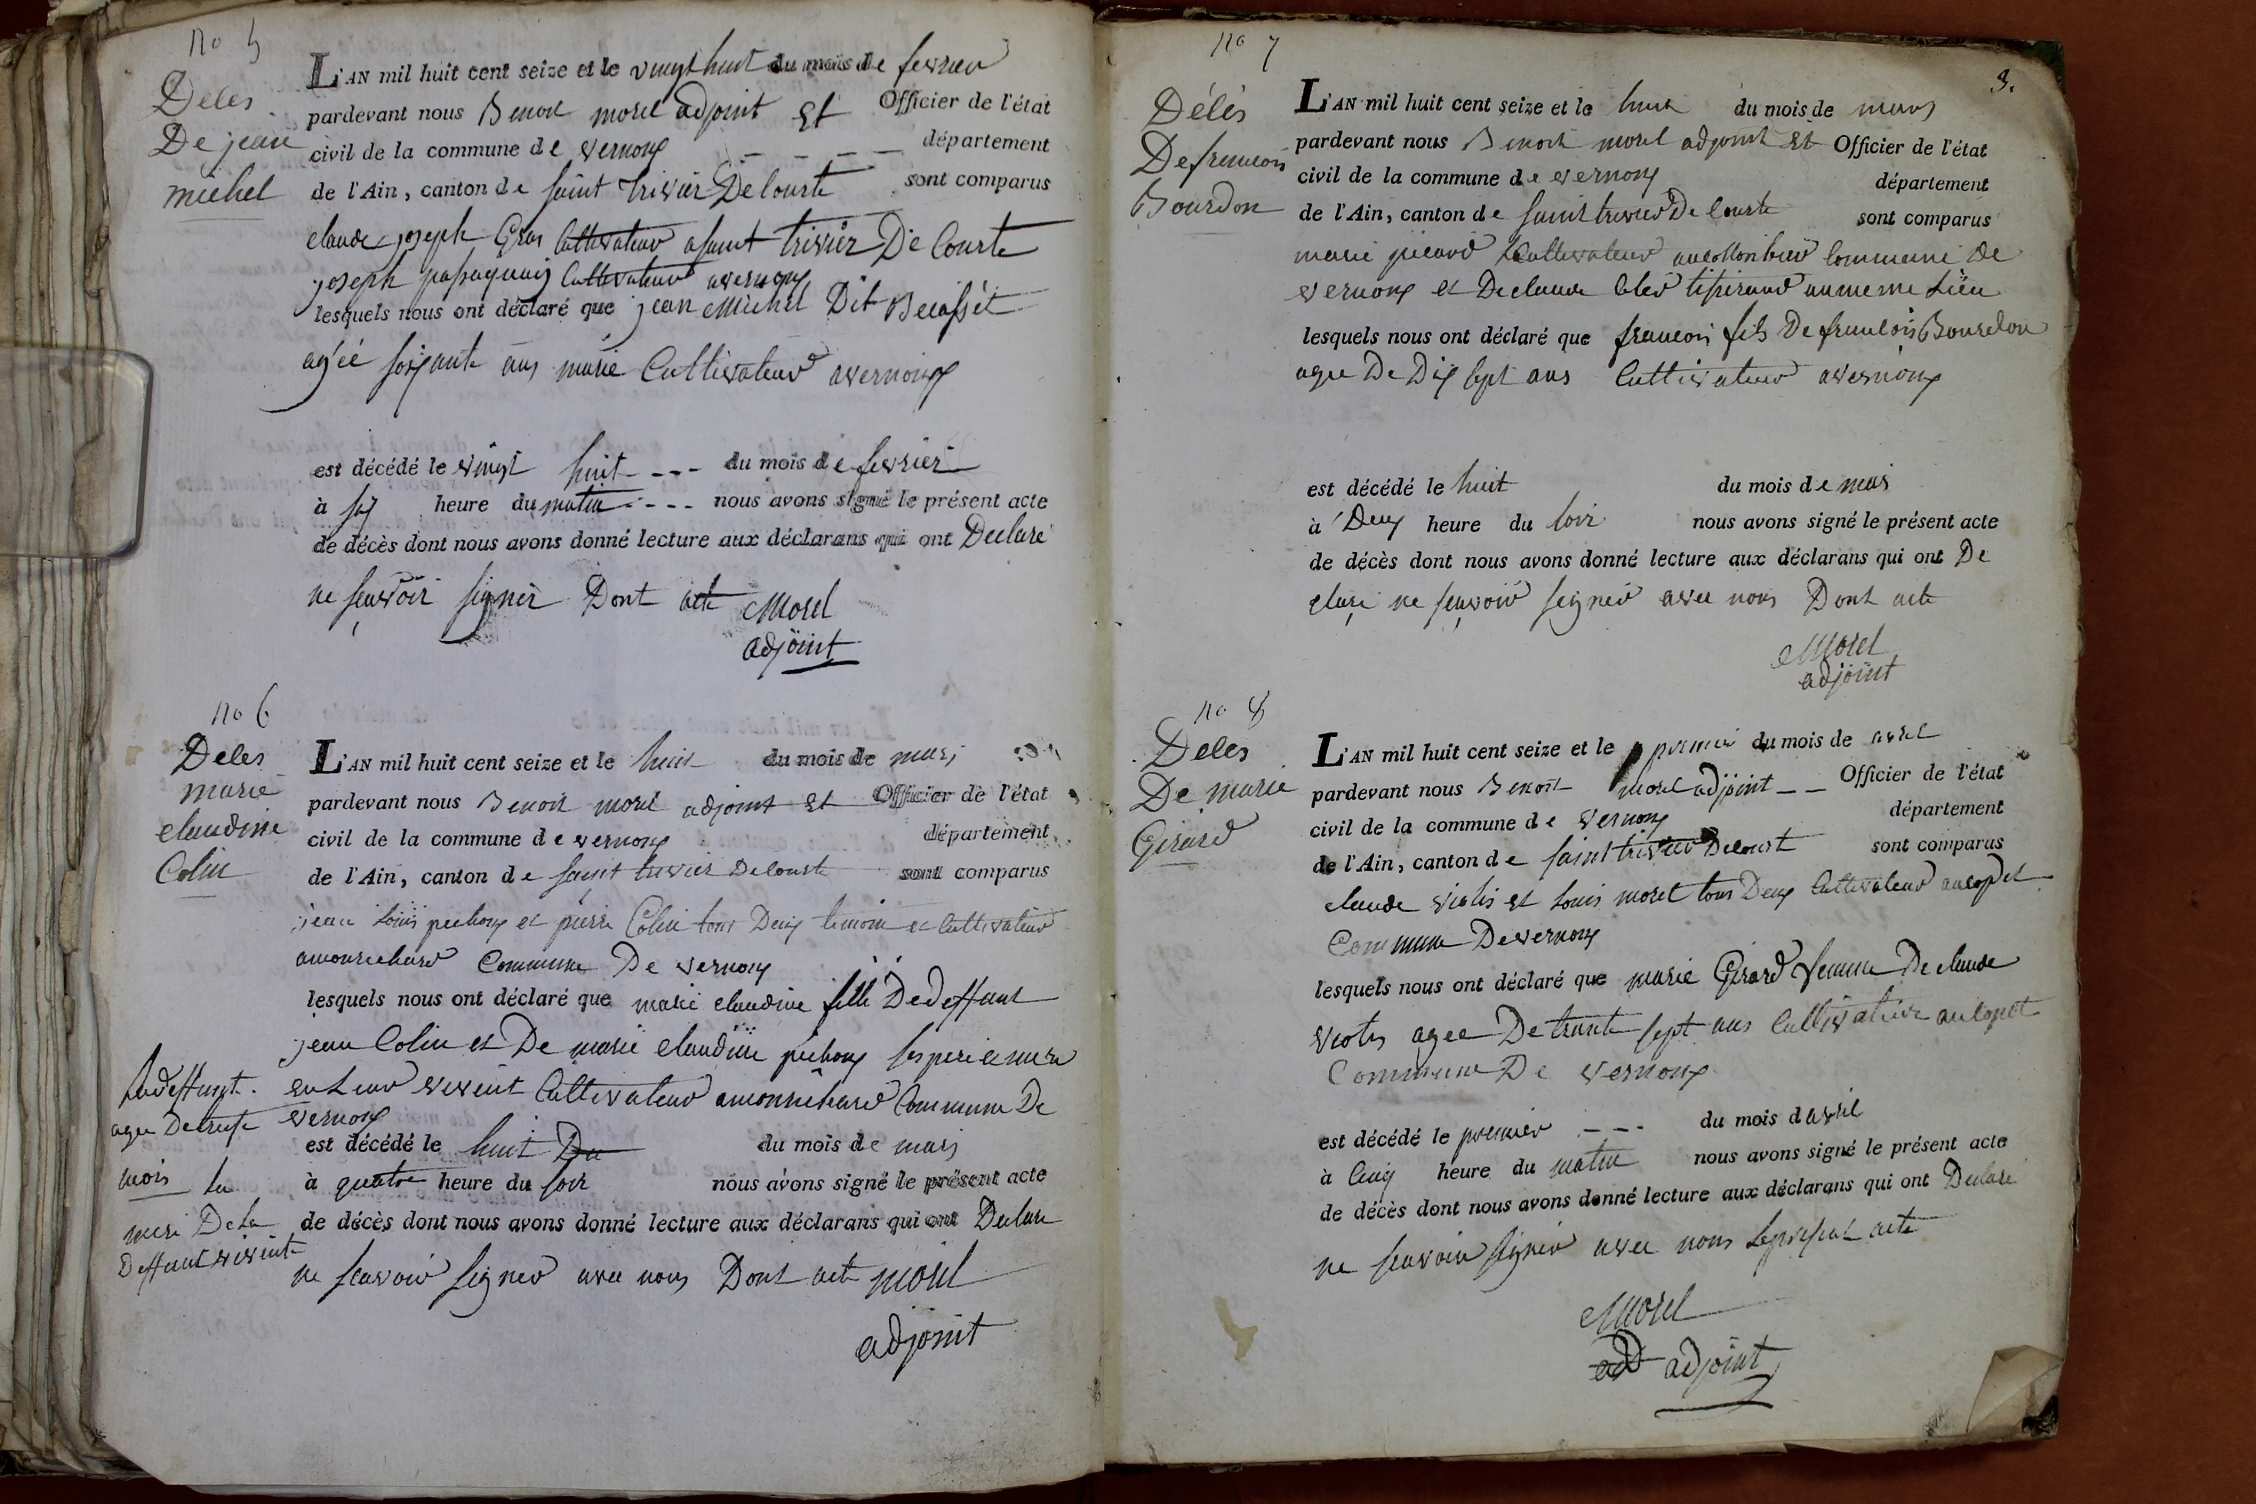 no 5
Déces
De jean
michel
L'AN mil huit cent seize et le vingt huit du mois de fevrier
pardevant nous Benoit morel adjoint et Officier de l'état
civil de la commune de vernoux département
de l'Ain, canton de saint trivier De Courte sont comparus
claude joseph Gras Cultivateur a saint trivier De Courte
joseph Cultivateur a vernoux
lesquels nous ont déclaré que jean Michel Dit Becasset
agéé soixante ans marié Cultivateur a vernoux
est décédé le vingt huit du mois de fevrier
à six heure du matin nous avons signé le présent acte
de décès dont nous avons donné lecture aux déclarans qui ont Declaré
ne scavoir signer Dont acte Morel
adjoint
no 6
Déces
marie
claudine
Colin
L'AN mil huit cent seize et le huit du mois de mars
pardevant nous Benoit morel adjoint et Officier de l'état
civil de la commune de vernoux département
de l'Ain, canton de saint trivier De Courte sont comparus
jean Louis pechoux et pierre Colin tous Deux temoin et Cultivateur
a monrichard Commune De vernoux
lesquels nous ont déclaré que marie claudine fille De deffunt
jean Colin et De marie claudine pechoux ses pere et mere
en Leur vivent Cultivateur a monrichard Commune De
vernoux
La deffunt
agee De treise
mois La
mere De La
Deffunt vivente
est décédé le huit Du du mois de mars
à quatre heure du soir nous avons signé le présent acte
de décès dont nous avons donné lecture aux déclarans qui ont Declare
ne scavoir signer avec nous Dont acte morel
adjoint
3.
no 7
Décés
De francois
Bourdon
L'AN mil huit cent seize et le huit du mois de mars
pardevant nous Benoit morel adjoint et Officier de l'état
civil de la commune de vernoux département
de l'Ain, canton de saint trivier De Courte sont comparus
marie picard Cultivateur au Commune de
vernoux et De claude au meme Lieu
lesquels nous ont déclaré que francois fils De francois Bourdon
agee De Dix sept ans Cultivateur a vernoux
est décédé le huit du mois de mars
à Deux heure du soir nous avons signé le présent acte
de décès dont nous avons donné lecture aux déclarans qui ont De
claré ne scavoir signer avec nous Dont acte
Morel
adjoint
no 8
Décés
De marie
Girard
L'AN mil huit cent seize et le premier du mois de avril
pardevant nous Benoit morel adjoint Officier de l'état
civil de la commune de vernoux département
de l'Ain, canton de saint trivier De Courte sont comparus
claude violis et Louis morel tous Deux Cultivateur au
Commune De vernoux
lesquels nous ont déclaré que marie Girard femme De claude
agee De trante sept ans Cultivatrice au
Commune De vernoux
est décédé le premier du mois d avril
à Cinq heure du matin nous avons signé le présent acte
de décès dont nous avons donné lecture aux déclarans qui ont Declaré
ne scavoir signer avec nous Le present acte
Morel
ad adjoint